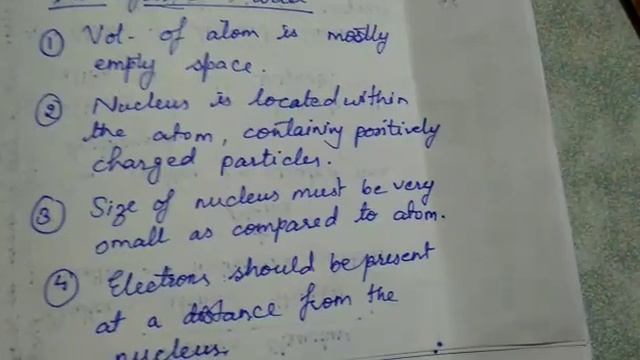 ① Vol- of atom is mostly
empty space.
② Nucleus is located within
the atom, containing positively
charged particles.
③ Size of nucleus must be very
small as compared to atom.
④ Electrons should be present
at a distance from the
nucleus.